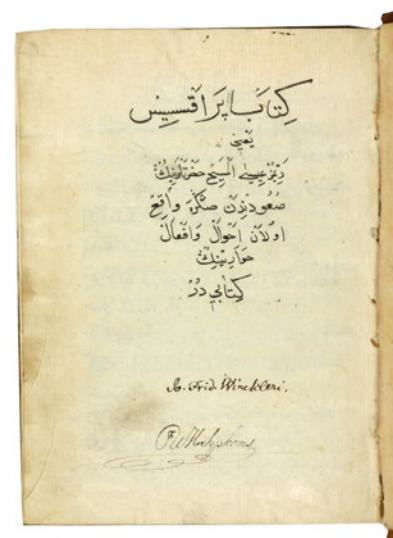 كِتَاب پَرَاقسِيس
يَعْنِى
رَبِّمِزْ عِيسَى الْمَسِيح حَضْرَتْلَرِينِكْ
صُعُودِنْدَنْ صَڭْرَه وَاقِع
اولَانْ احْوَالْ وَافْعَالْ
حَوَارِيِّينِكْ
كِتَابِي دُرْ
Jo. Frid. Winckleri.